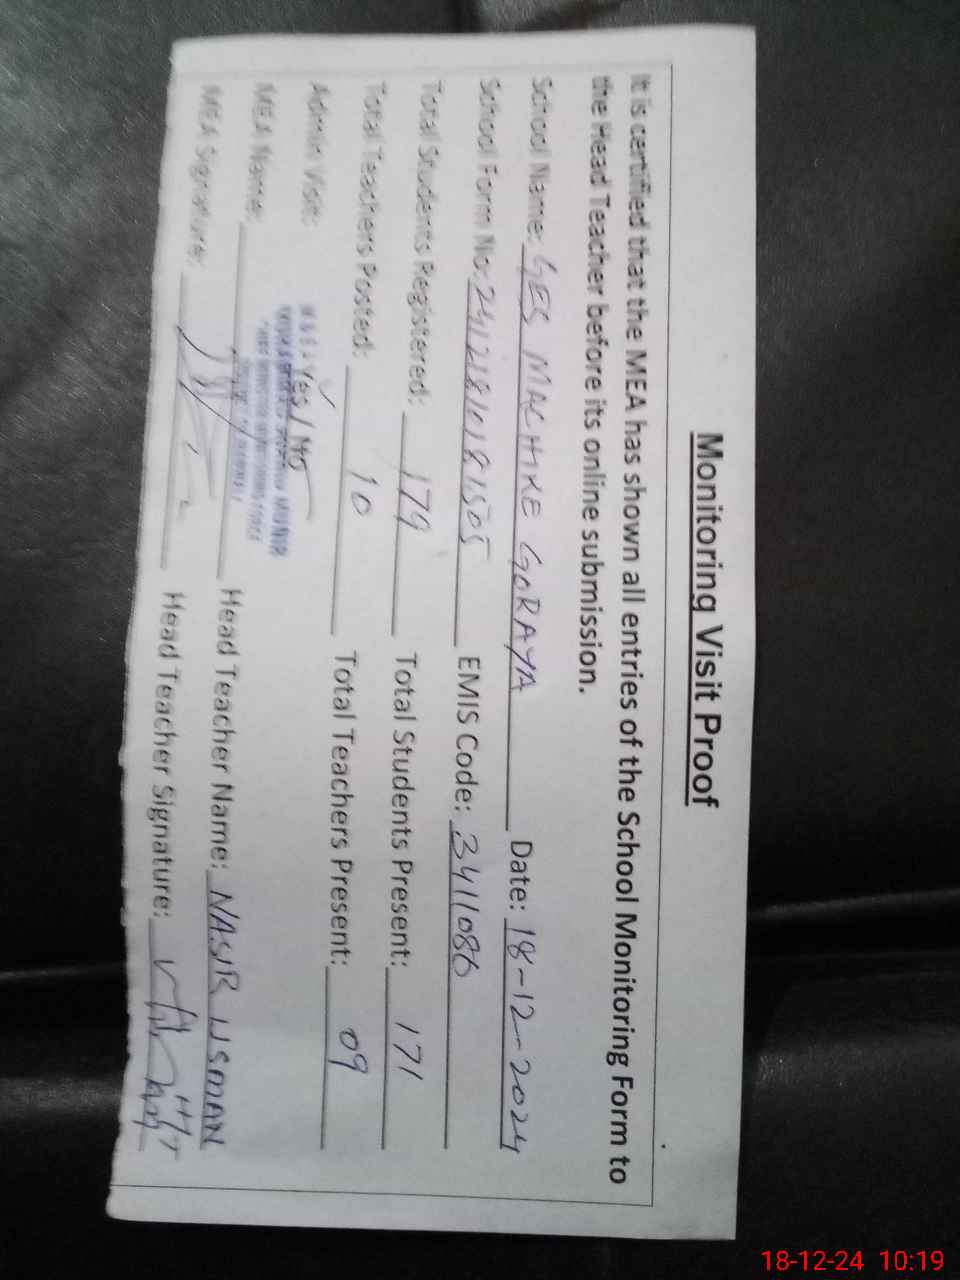 Monitoring Visit Proof
It is certified that the MEA has shown all entries of the School Monitoring Form to
the Head Teacher before its online submission.
School Name: GES MACHIKE GORAYA Date: 18-12-2024
School Form No: EMIS Code: 34111086
Total Students Registered: 179 Total Students Present: 171
Total Teachers Posted: 10 Total Teachers Present: 09
Admin Visit: Yes / No
MEA Name: Head Teacher Name: NASIR USMAN
MEA Signature: Head Teacher Signature:
18-12-24 10:19